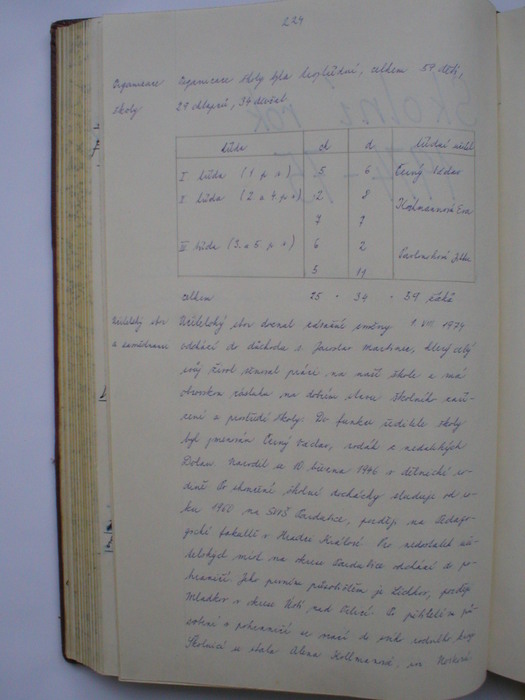 224
Organizace Organizace školy byla trojtřídní, celkem 59 dětí,
školy 29 chlapců, 34 děvčat.
třída ch d třídní učitel
I třída (1 p. r.) 5 6 Černý Václav
I třída (2 a 4 p. r.) 2 8
Kollmannová Eva
7 7
III třída (3. a 5. p. r.) 6 2
3 11
celkem 25 - 34 - 59 žáků
Učitelský sbor Učitelský sbor doznal zásadní změny 1 VIII 1974
a zaměstnanci odchází do důchodu s. Jaroslav Martinec, který celý
svůj život věnoval práci na naší škole a má
obrovskou zásluhu na dobrém stavu školního zaří-
zení a prostředí školy. Do funkce ředitele školy
byl jmenován Černý Václav, rodák z nedalekých
Dolan. Narodil se 10 března 1946 v dělnické ro-
dině. Po skončení školní docházky studuje od ro-
ku 1960 na SVVŠ Pardubice, později na Pedago-
gické fakultě v Hradci Králové. Pro nedostatek uči-
telských míst na okrese Pardubice odchází do po-
hraničí. Jeho prvním působištěm je Lichkov, později
Mladkov v okrese Ústí nad Orlicí. Po pětiletém pů-
sobení v pohraničí se vrací do svého rodného kraje
Školnicí se stala Alena Kollmanová,